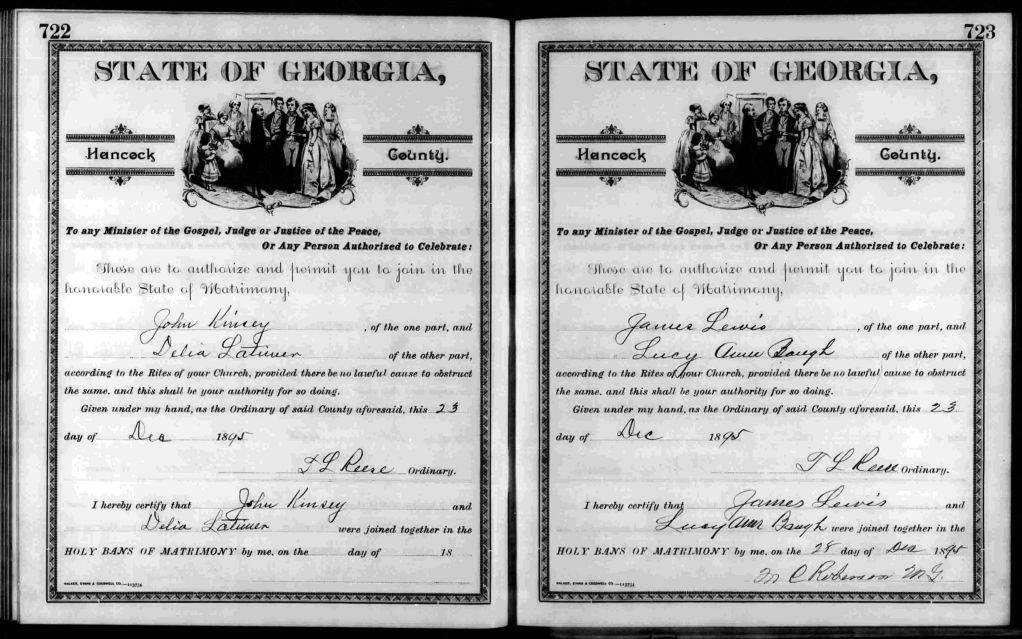 722
STATE OF GEORGIA,
Hancock County.
To any Minister of the Gospel, Judge or Justice of the Peace,
Or Any Person Authorized to Celebrate:
These are to authorize and permit you to join in the
honorable State of Matrimony,
John Kinsey , of the one part, and
Delia Latimer of the other part,
according to the Rites of your Church, provided there be no lawful cause to obstruct
the same, and this shall be your authority for so doing.
Given under my hand, as the Ordinary of said County aforesaid, this 23
day of Dec 1895
T L Reese Ordinary.
I hereby certify that John Kinsey and
Delia Latimer were joined together in the
HOLY BANS OF MATRIMONY by me, on the day of 18
WALKER, EVANS & COGSWELL CO.—113734
723
STATE OF GEORGIA,
Hancock County.
To any Minister of the Gospel, Judge or Justice of the Peace,
Or Any Person Authorized to Celebrate:
These are to authorize and permit you to join in the
honorable State of Matrimony,
James Lewis , of the one part, and
Lucy Ann Baugh of the other part,
according to the Rites of your Church, provided there be no lawful cause to obstruct
the same, and this shall be your authority for so doing.
Given under my hand, as the Ordinary of said County aforesaid, this 23
day of Dec 1895
T L Reese Ordinary.
I hereby certify that James Lewis and
Lucy Ann Baugh were joined together in the
HOLY BANS OF MATRIMONY by me, on the 28 day of Dec 1895
M C Roberson M.G.
WALKER, EVANS & COGSWELL CO.—113734